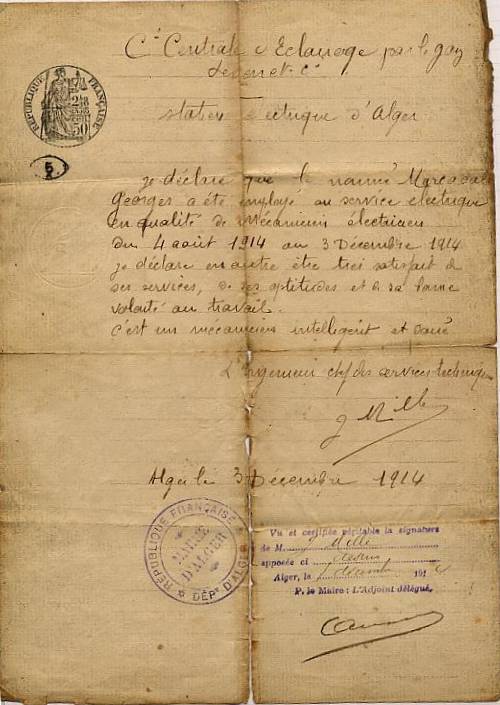 Cie Centrale d'Eclairage par le gaz
Lebon et Cie
RÉPUBLIQUE FRANÇAISE
50
Station électrique d'Alger
5
je déclare que le nommé
Georges a été employé au service electrique
en qualité de Mécanicien électricien
du 4 août 1914 au 3 Décembre 1914
je déclare en outre être très satisfait de
ses services, de ses aptitudes et de sa bonne
volonté au travail.
C'est un mécanicien intelligent et
L'Ingenieur chef des services techniques
J Mille
Alger le 3 Décembre 1914
RÉPUBLIQUE FRANÇAISE
MAIRIE
D'ALGER
DÉPT D'ALGER
Vu et certifiée véritable la signature
de M. Mille
apposée ci dessus
Alger, le décembre 1914
P. le Maire : L'Adjoint délégué,